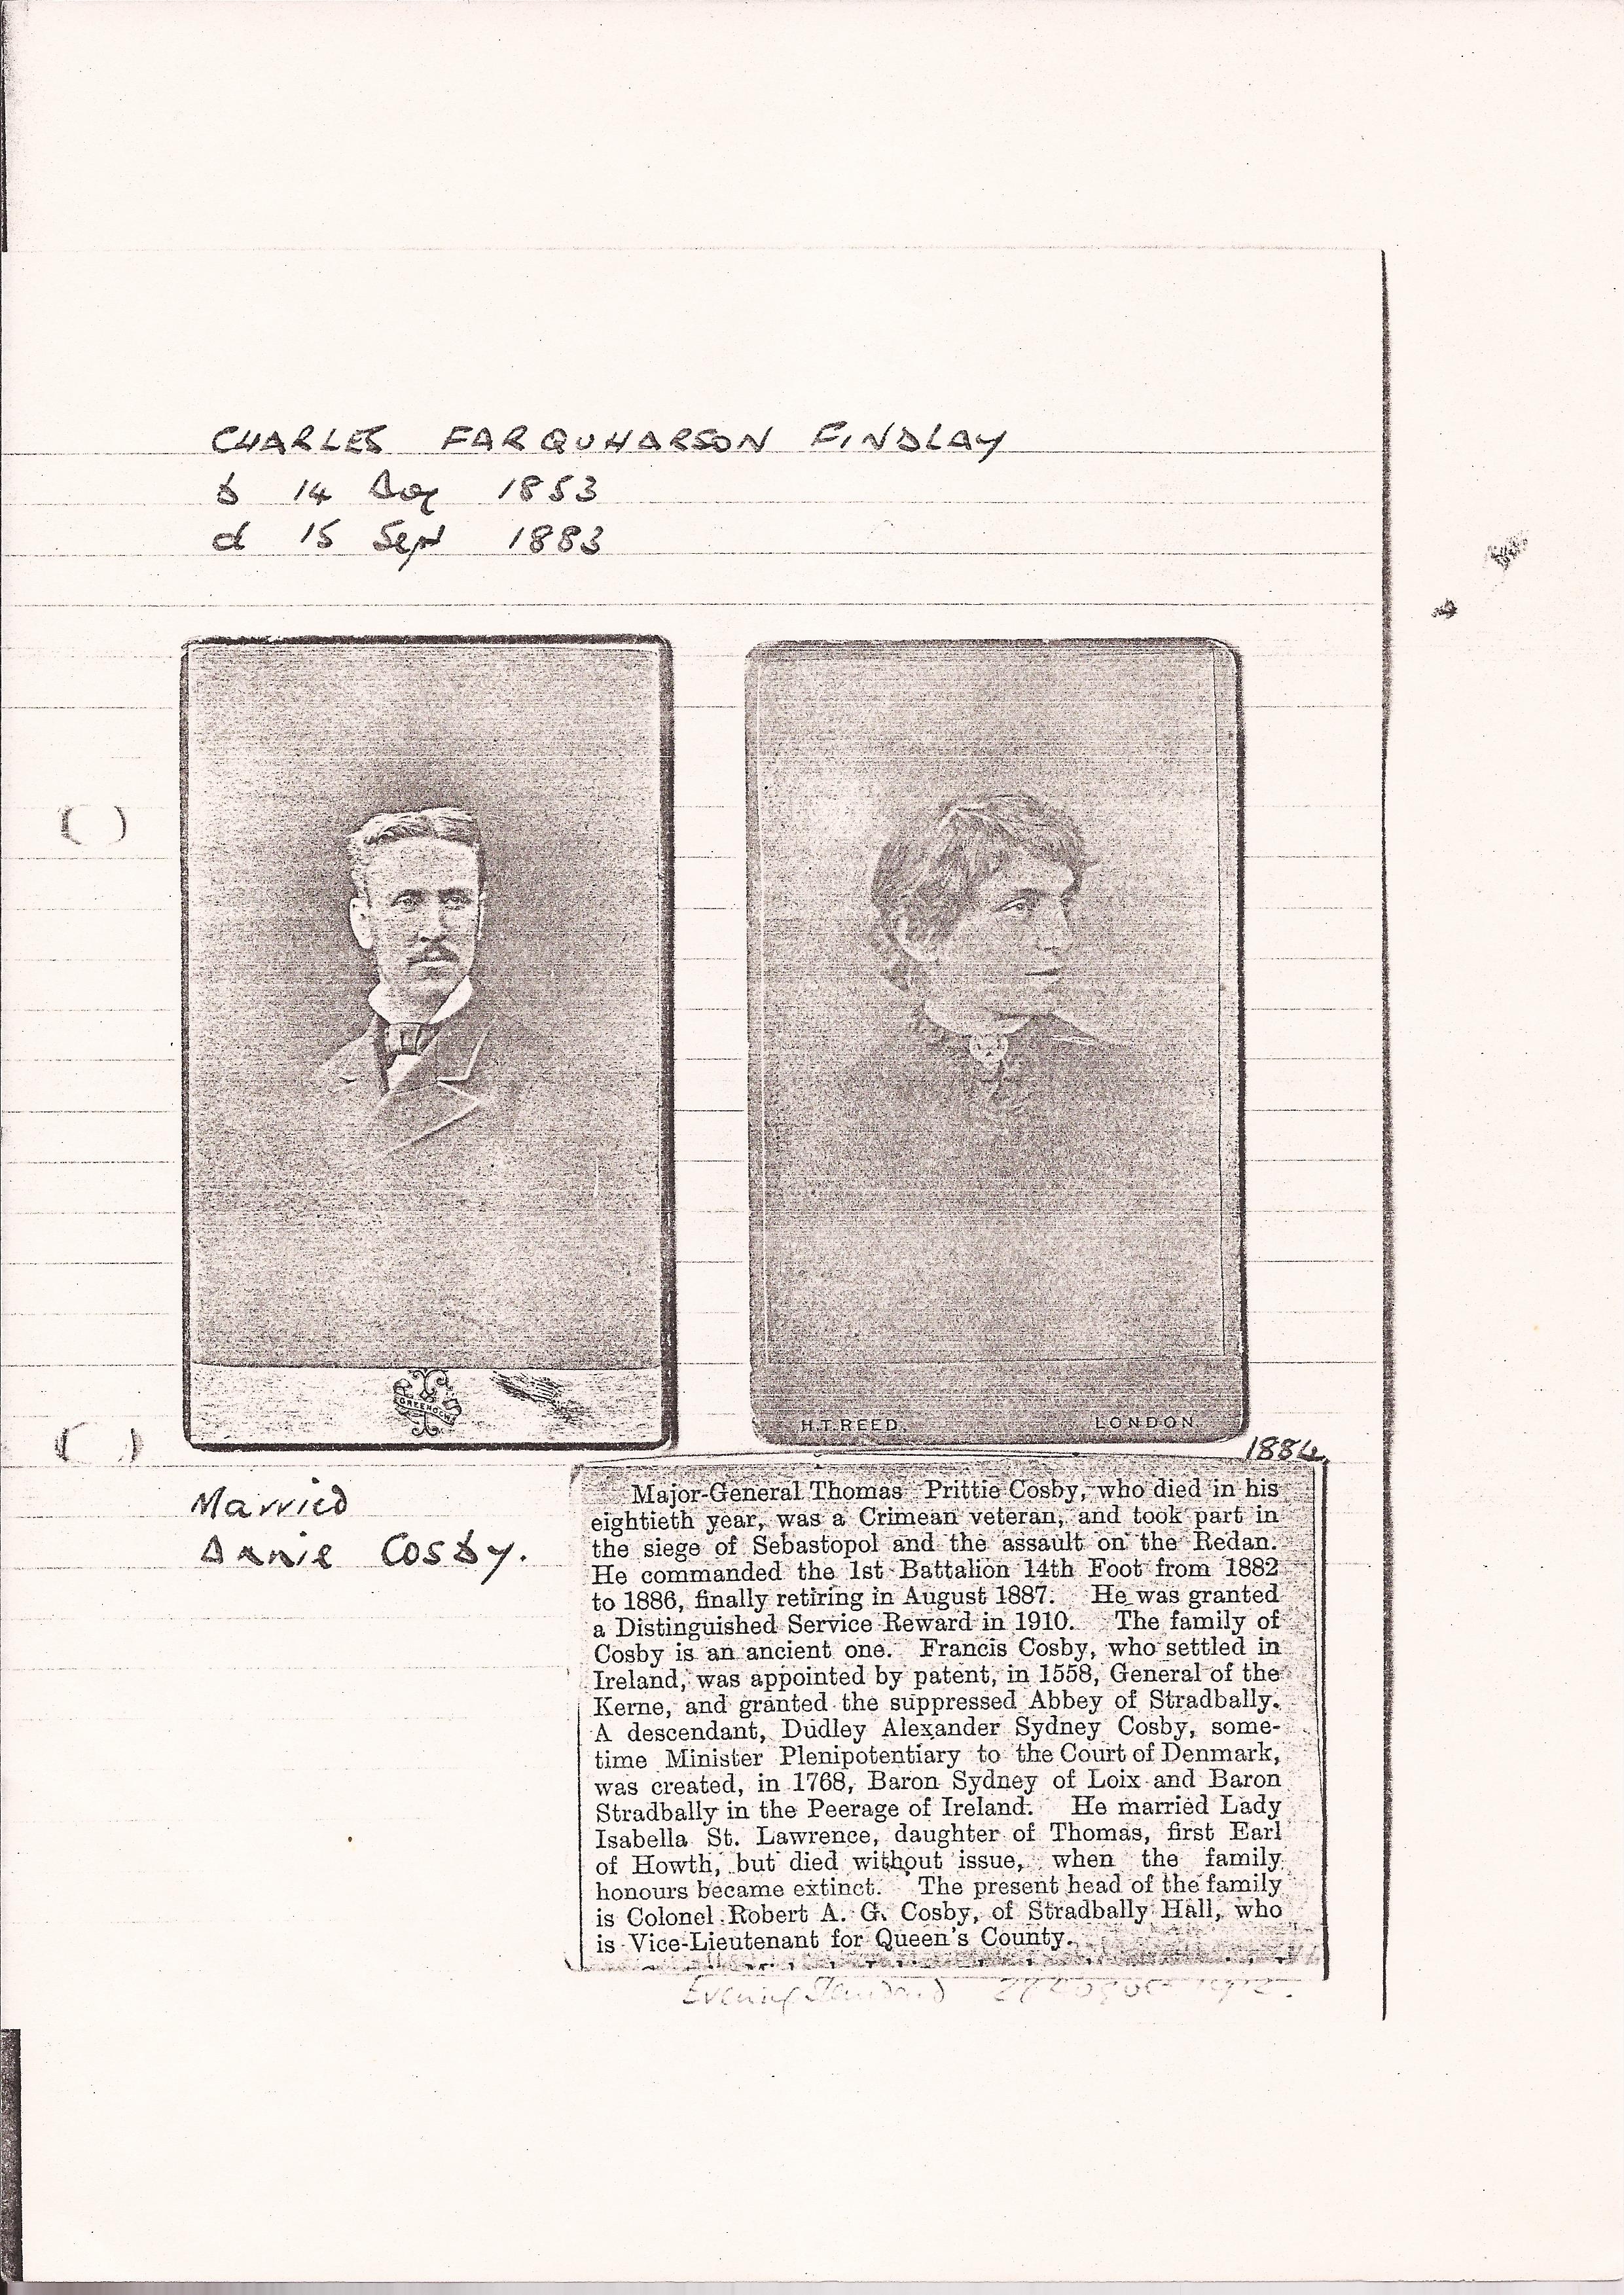 CHARLES FARQUHARSON FINDLAY
b 14 Aug 1853
d 15 Sep 1883
GREENOCK
H.T. REED. LONDON
1884
Married
Annie Cosby.
Major-General Thomas Prittie Cosby, who died in his
eightieth year, was a Crimean veteran, and took part in
the siege of Sebastopol and the assault on the Redan.
He commanded the 1st Battalion 14th Foot from 1882
to 1886, finally retiring in August 1887. He was granted
a Distinguished Service Reward in 1910. The family of
Cosby is an ancient one. Francis Cosby, who settled in
Ireland, was appointed by patent, in 1558, General of the
Kerne, and granted the suppressed Abbey of Stradbally.
A descendant, Dudley Alexander Sydney Cosby, some-
time Minister Plenipotentiary to the Court of Denmark,
was created, in 1768, Baron Sydney of Loix and Baron
Stradbally in the Peerage of Ireland. He married Lady
Isabella St. Lawrence, daughter of Thomas, first Earl
of Howth, but died without issue, when the family
honours became extinct. The present head of the family
is Colonel Robert A. G. Cosby, of Stradbally Hall, who
is Vice-Lieutenant for Queen's County.
Evening Standard